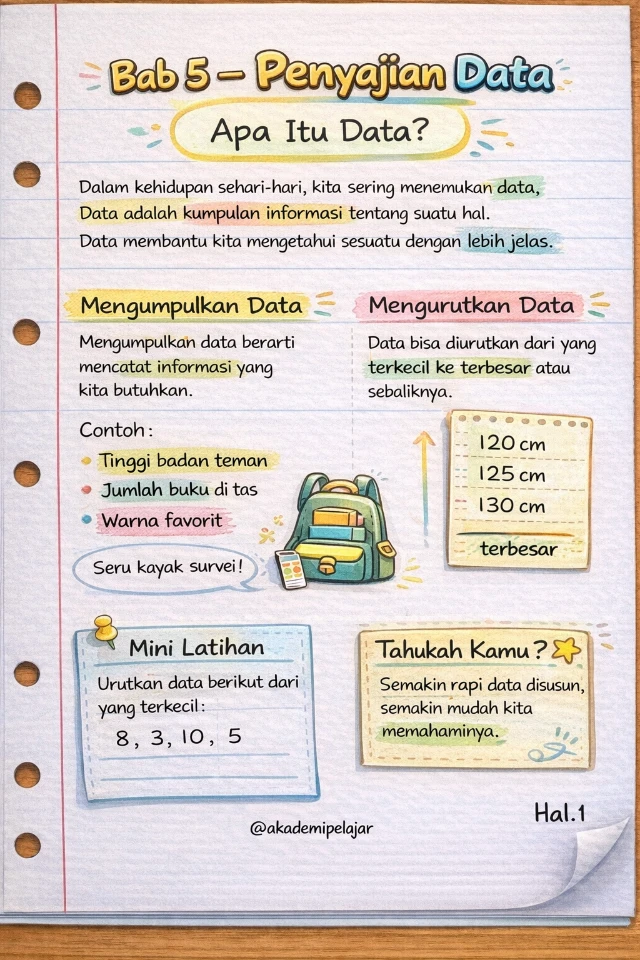 Bab 5 – Penyajian Data
Apa Itu Data?
Dalam kehidupan sehari-hari, kita sering menemukan data,
Data adalah kumpulan informasi tentang suatu hal.
Data membantu kita mengetahui sesuatu dengan lebih jelas.
Mengumpulkan Data
Mengumpulkan data berarti
mencatat informasi yang
kita butuhkan.
Contoh:
Tinggi badan teman
Jumlah buku di tas
Warna favorit
Seru kayak survei!
Mengurutkan Data
Data bisa diurutkan dari yang
terkecil ke terbesar atau
sebaliknya.
120 cm
125 cm
130 cm
terbesar
Mini Latihan
Urutkan data berikut dari
yang terkecil:
8, 3, 10, 5
Tahukah Kamu?
Semakin rapi data disusun,
semakin mudah kita
memahaminya.
Hal.1
@akademipelajar